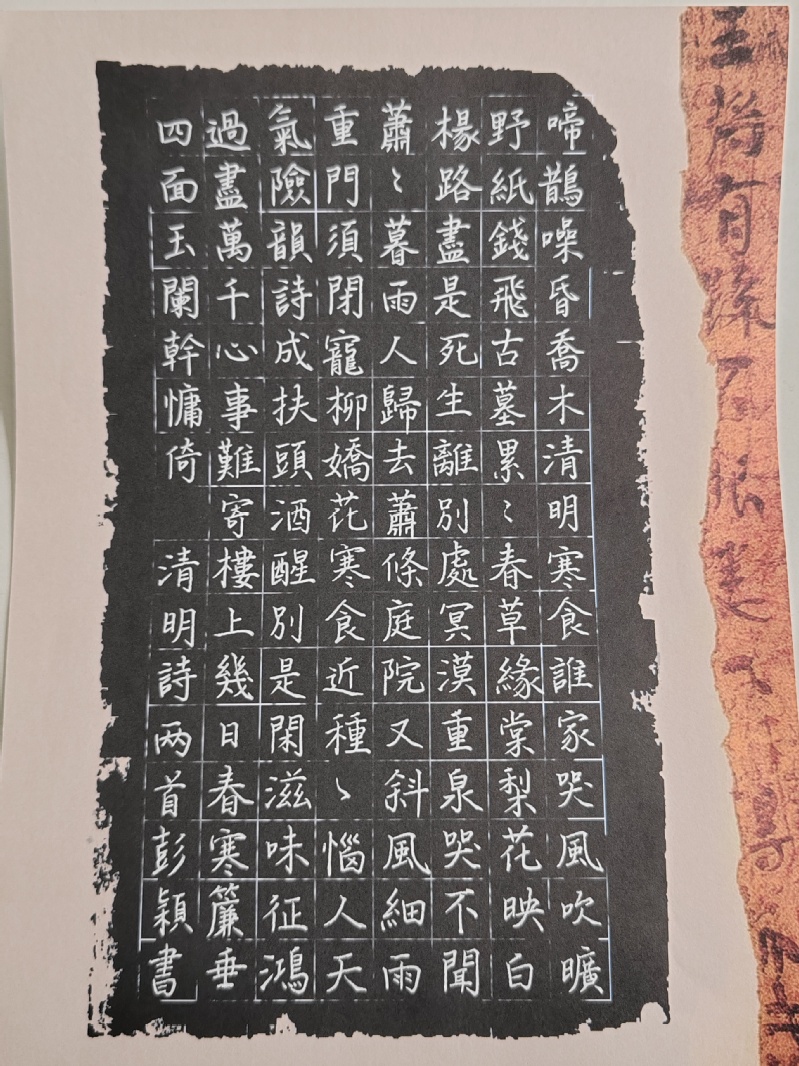 啼鵲噪昏喬木清明寒食誰家哭風吹曠
野紙錢飛古墓累〻春草緑棠梨花映白
楊路盡是死生離別處冥漠重泉哭不聞
蕭〻暮雨人歸去蕭條庭院又斜風細雨
重門須閉寵柳嬌花寒食近種〻惱人天
氣險韻詩成扶頭酒醒別是閑滋味征鴻
過盡萬千心事難寄樓上幾日春寒簾垂
四面玉闌幹慵倚 清明詩两首彭穎書